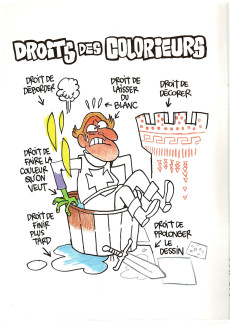 DROITS DES COLORIEURS
DROIT DE
DÉBORDER
DROIT DE
LAISSER
DU
BLANC
DROIT DE
DÉCORER
DROIT
DE FAIRE LA
COULEUR
QU'ON
VEUT
DROIT DE
FINIR
PLUS
TARD
DROIT DE
PROLONGER
LE
DESSIN